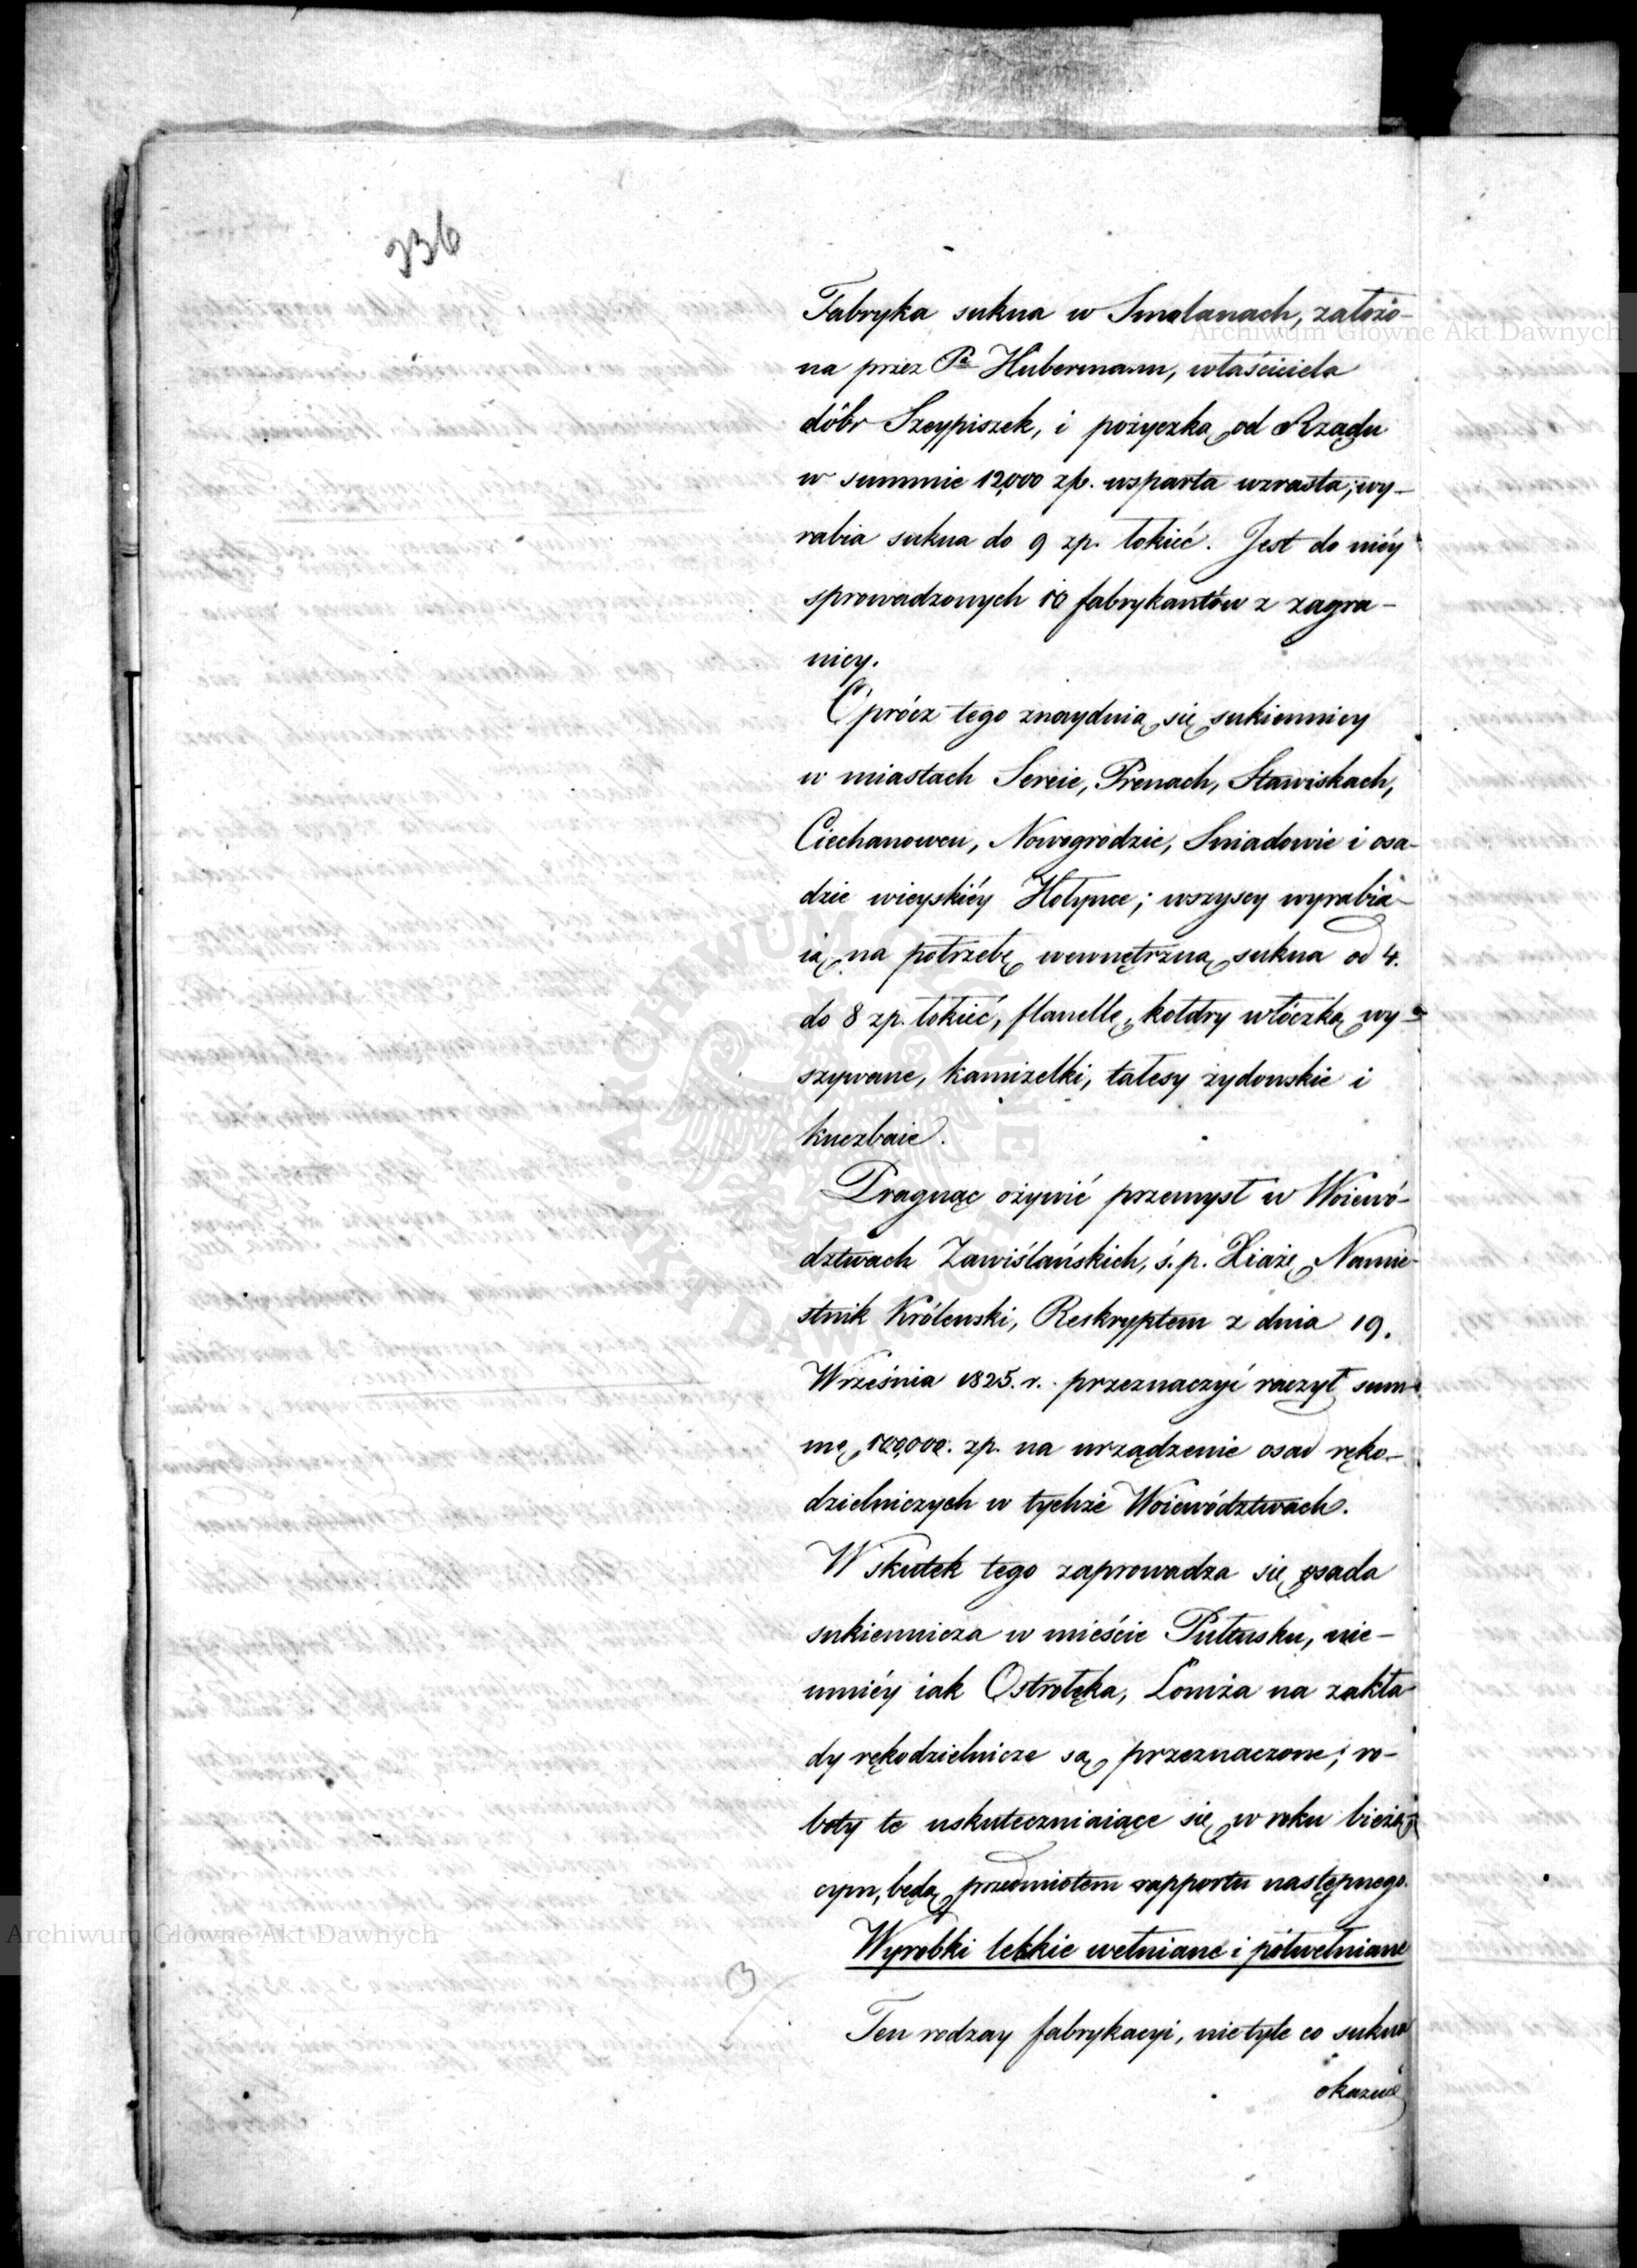 236
Fabryka sukna w Smolanach, założo-
na przez Pa Hubermann, właściciela
dóbr Szeypiszek, i pożyczką od Rządu
w summie 12,000 zp. wsparta wzrasta; wy-
rabia sukna do 9 zp. łokieć. Jest do niéy
sprowadzonych 10 fabrykantów z zagra-
nicy.
Oprócz tego znayduią się sukiennicy
w miastach Sereie, Prenach, Stawiskach,
Ciechanowcu, Nowogrodzie, Sniadowie i osa-
dzie wieyskiéy Hołynce; wszyscy wyrabia-
ią na potrzebę wewnętrzną sukna od 4.
do 8 zp. łokieć, flanellę, kołdry włóczką wy-
szywane, kamizelki, talesy żydowskie i
kuczbaie.
Pragnąc ożywić przemysł w Woiewó-
dztwach Zawiślańskich, ś. p. Xiąże Namie-
stnik Królewski, Reskryptem z dnia 19.
Września 1825. r. przeznaczyć raczył sum-
mę 100,000. zp. na urządzenie osad ręko-
dzielniczych w tychże Woiewództwach.
W skutek tego zaprowadza się osada
sukiennicza w mieście Pułtusku, nie-
mniéy iak Ostrołęka, Łomża na zakła-
dy rękodzielnicze są przeznaczone; ro-
boty te uskuteczniaiące się w roku bieżą-
cym, będą przedmiotem rapportu następnego.
Wyrobki lekkie wełniane i półwełniane
Ten rodzay fabrykacyi, nie tyle co sukna
okazuie
Archiwum Główne Akt Dawnych
Archiwum Główne Akt Dawnych
ARCHIWUM GŁÓWNE AKT DAWNYCH